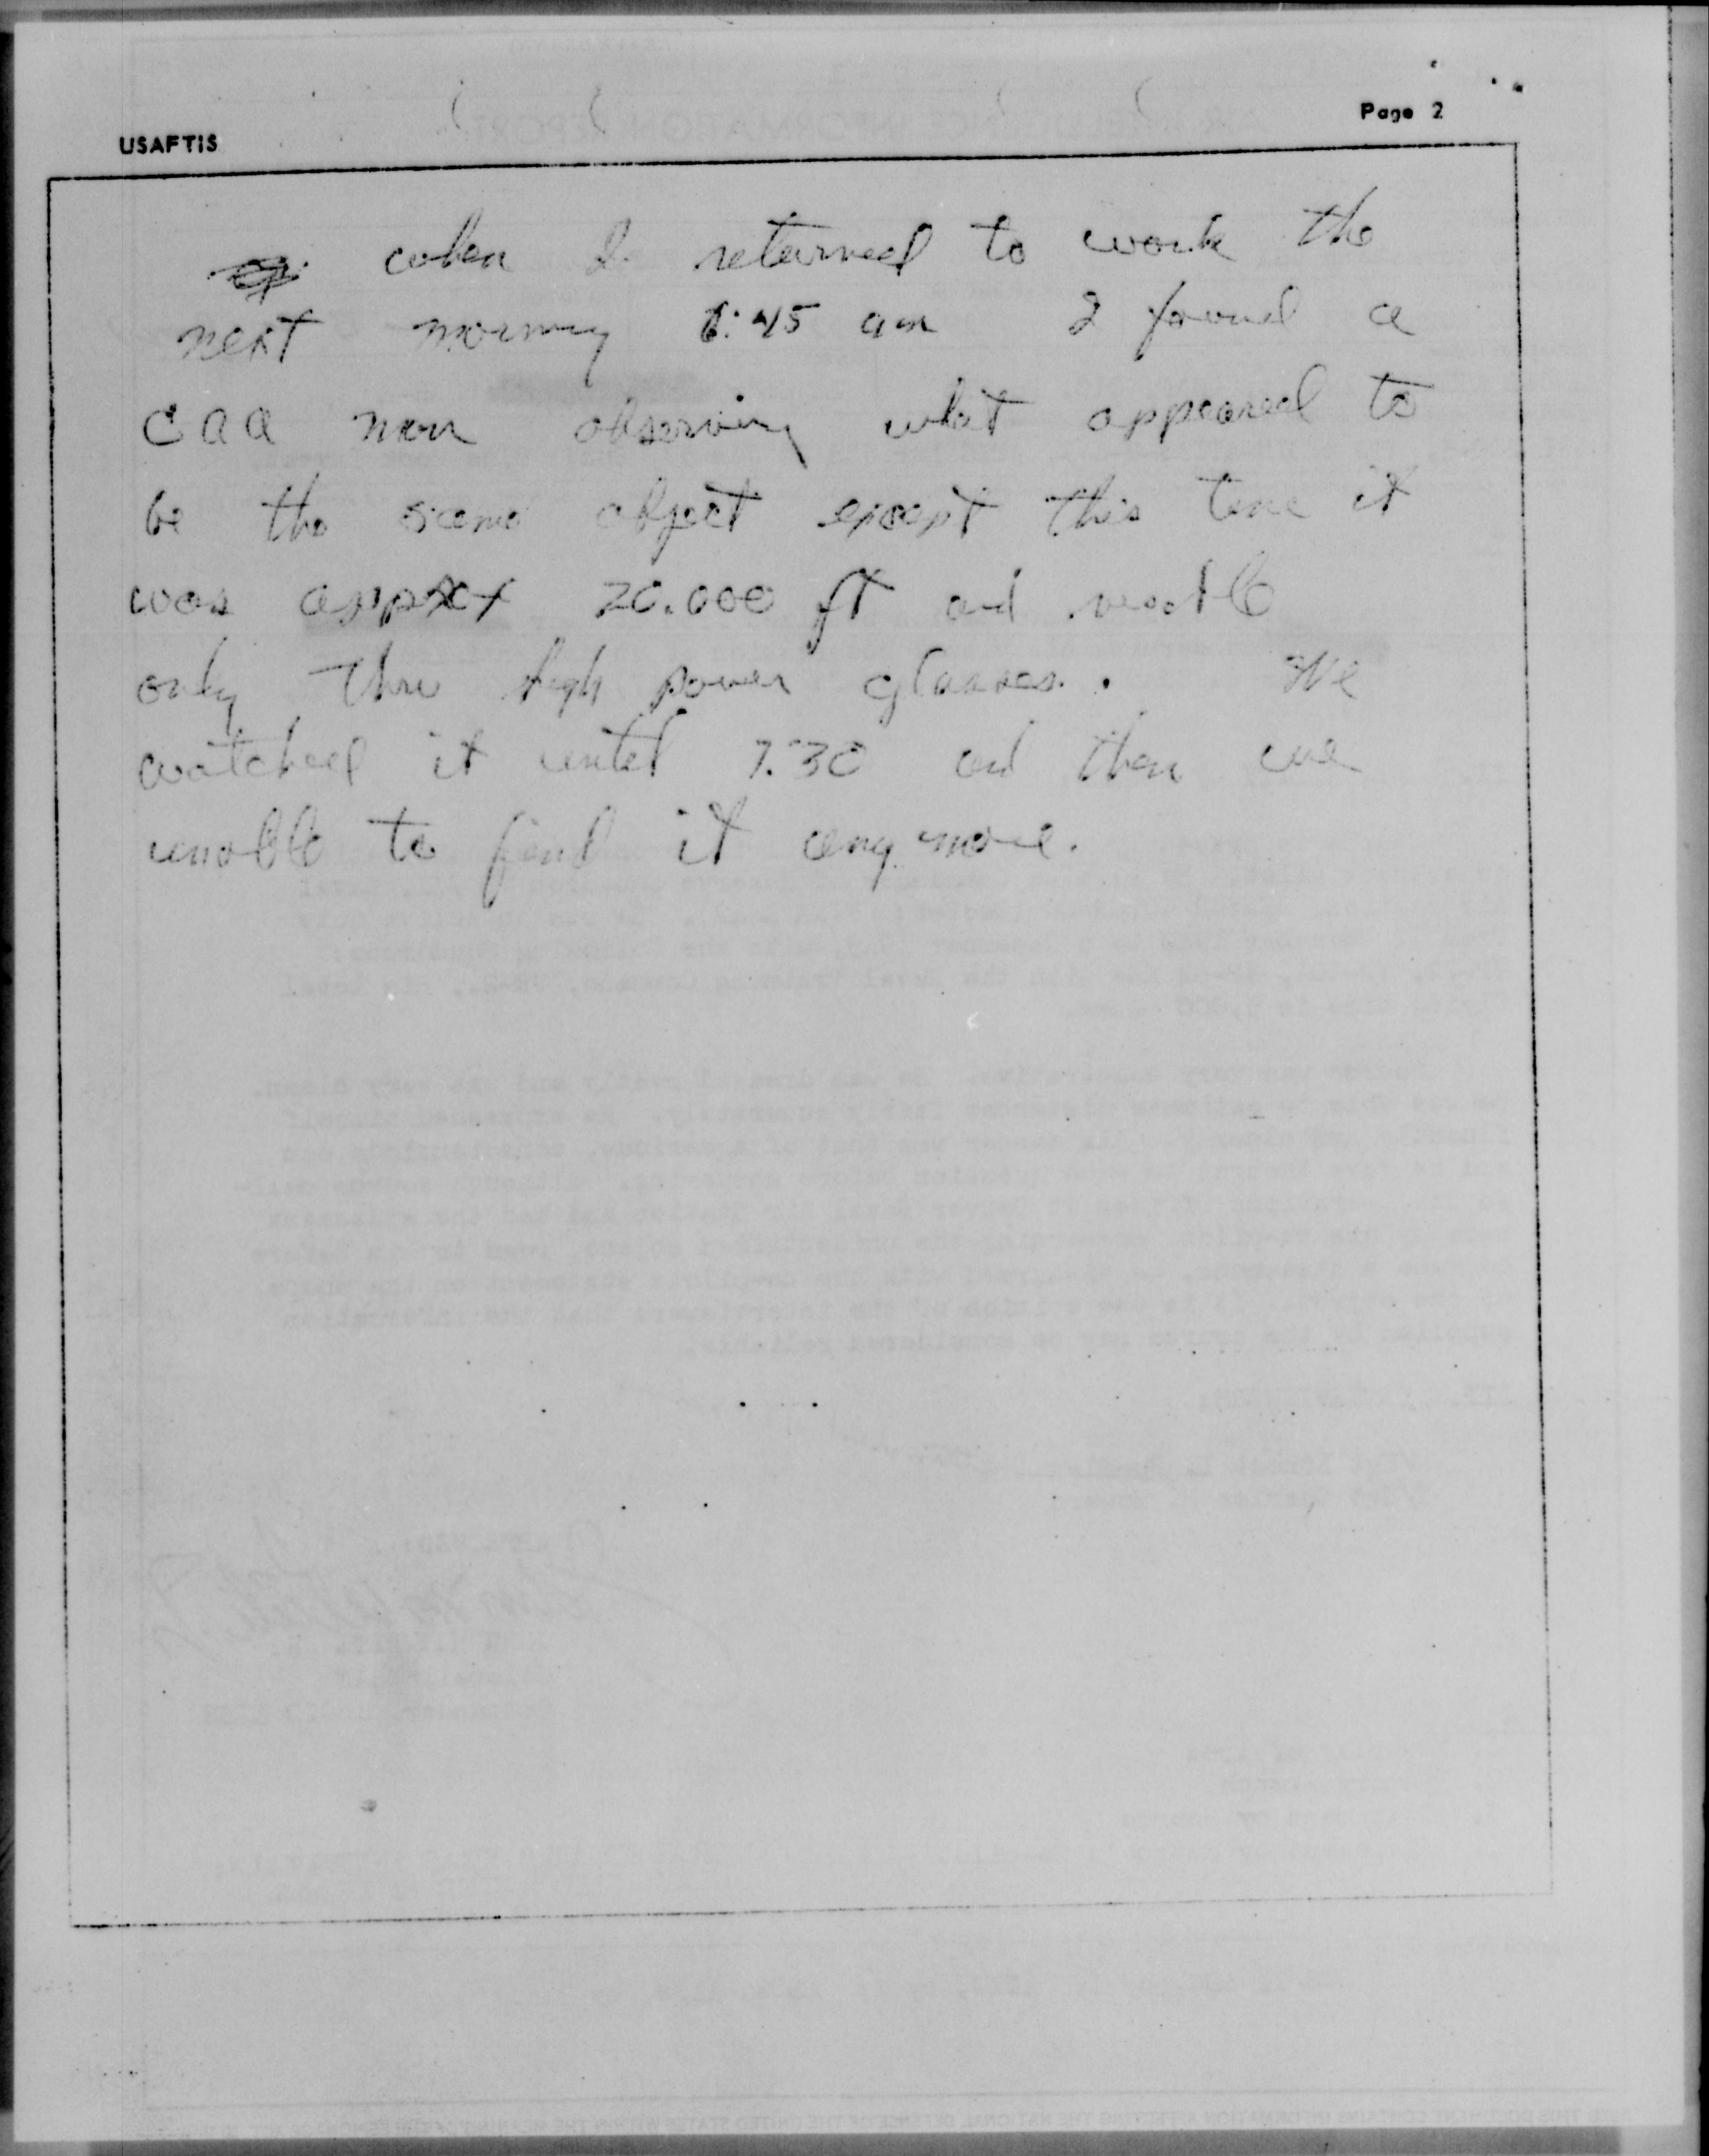 Page 2
USAFTIS
when I returned to work the
next morning 6:45 am I found a
CAA man observing what appeared to
be the same object except this time it
was approx 20.000 ft and
only thru high power glasses. We
watched it until 7:30 and then
unable to find it any more.